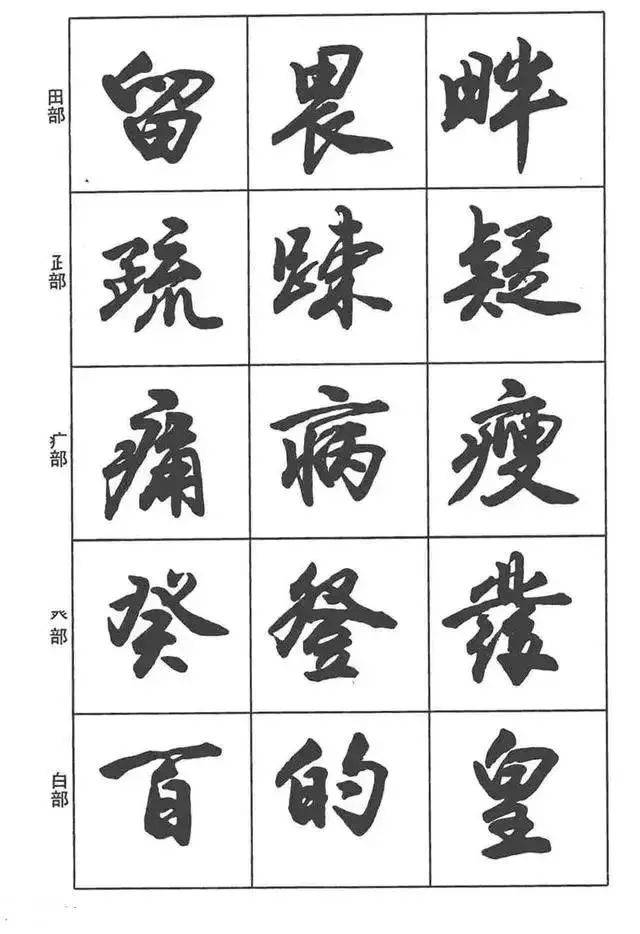 田部 留 畏 畔
⺪部 疏 踈 疑
疒部 痛 病 瘦
癶部 癸 登 發
白部 百 的 皇